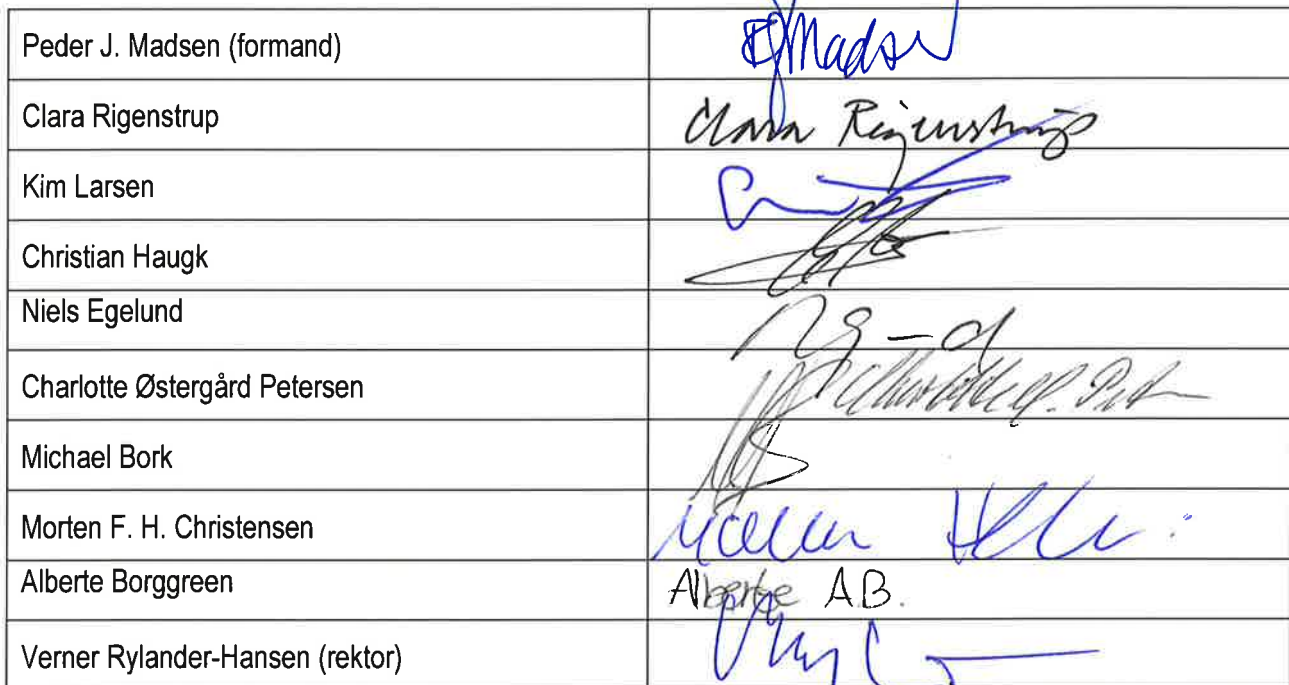 Peder J. Madsen (formand) PJMadsen
Clara Rigenstrup Clara Rigenstrup
Kim Larsen
Christian Haugk
Niels Egelund
Charlotte Østergård Petersen
Michael Bork
Morten F. H. Christensen
Alberte Borggreen Alberte A.B.
Verner Rylander-Hansen (rektor)